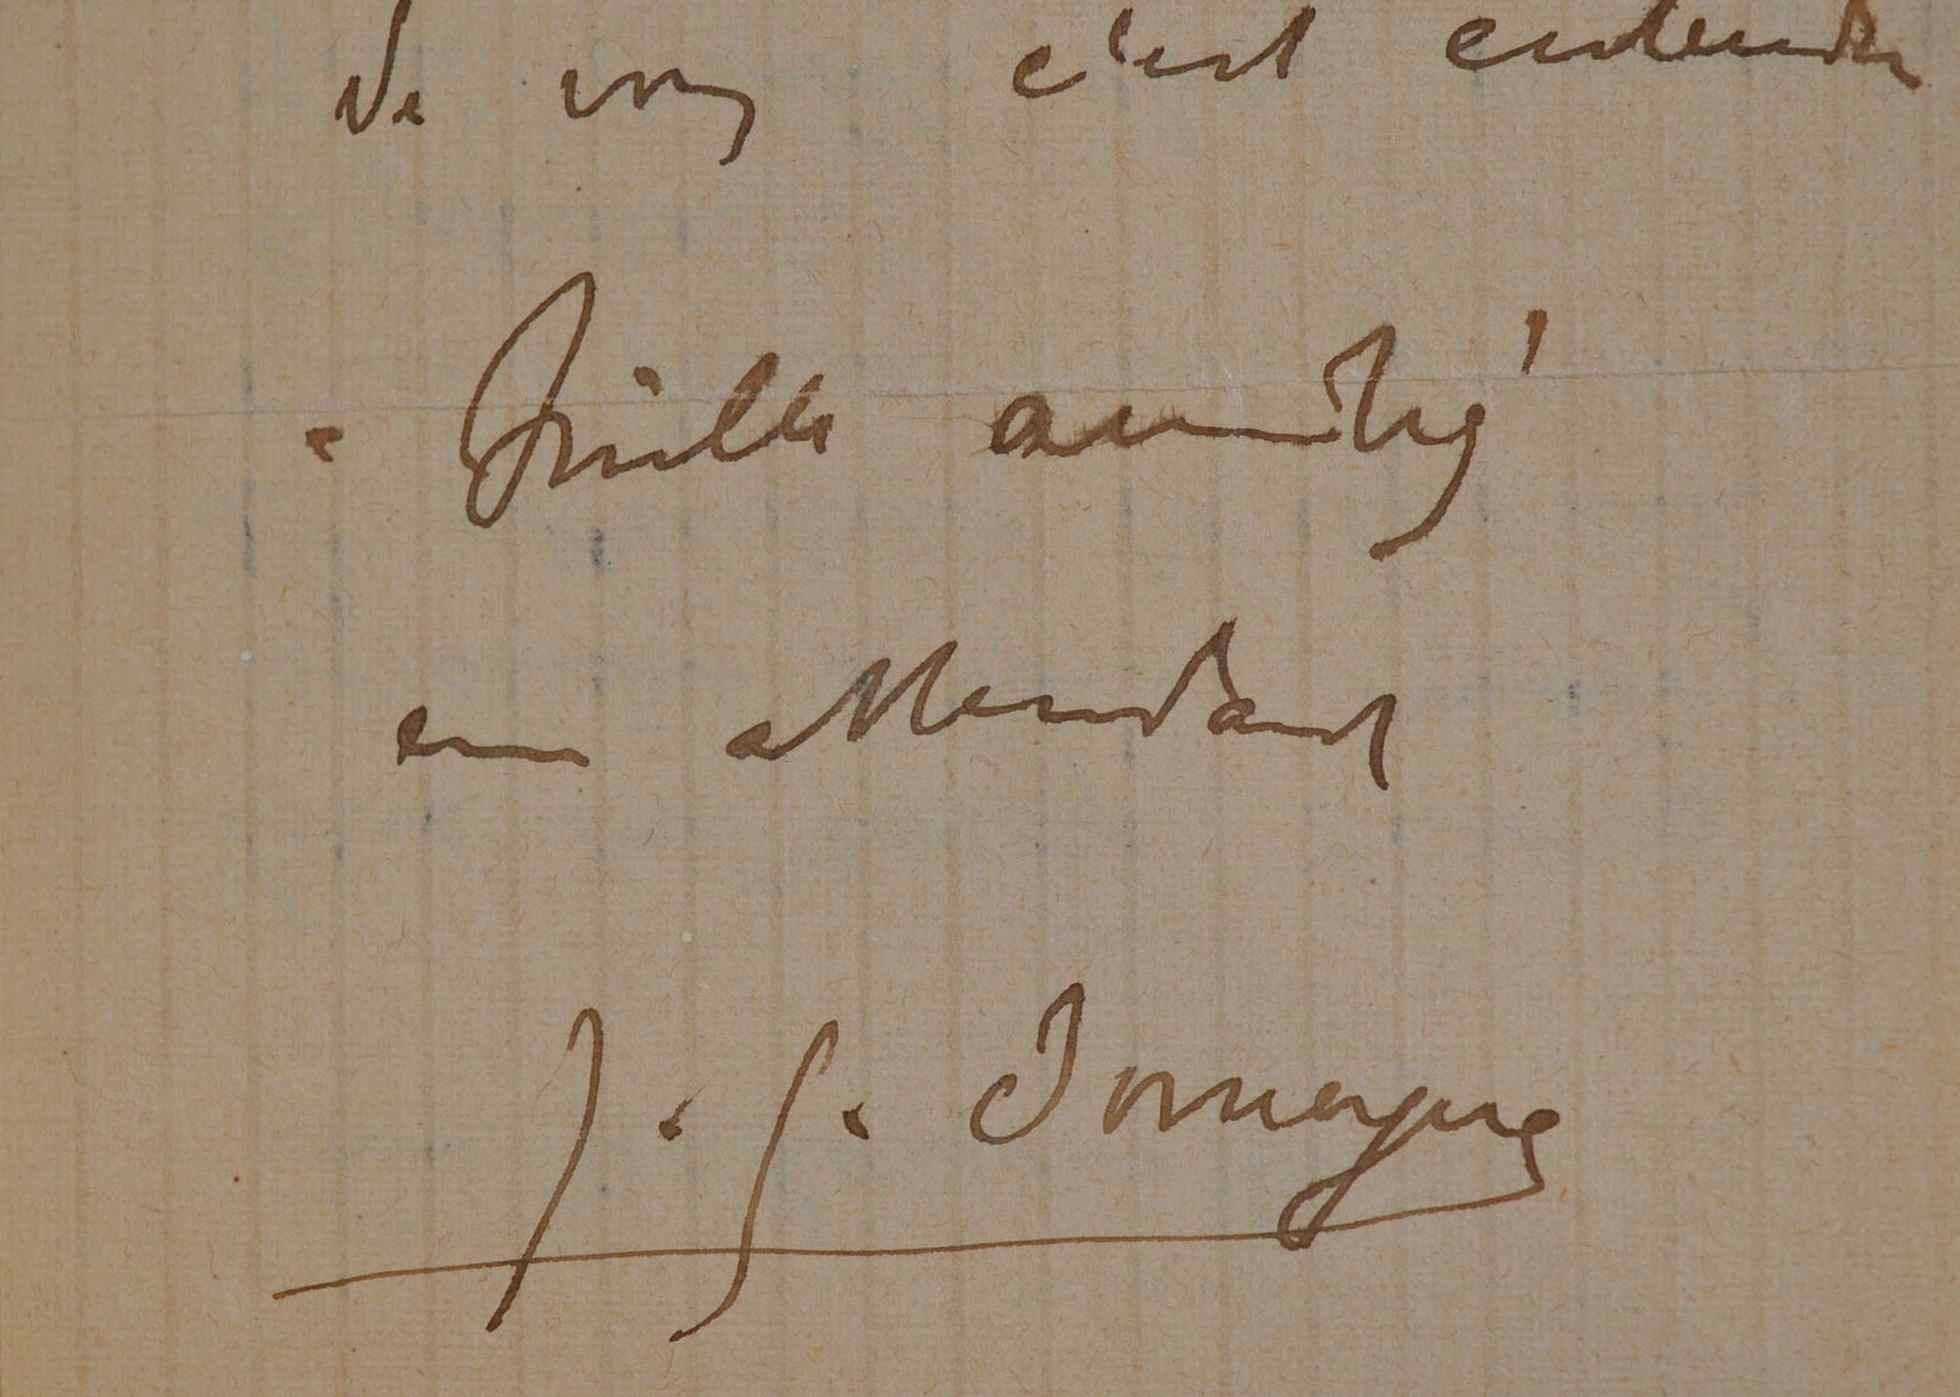 de vous c'est entendu
. Mille amitiés
en attendant
J. G. Domergue